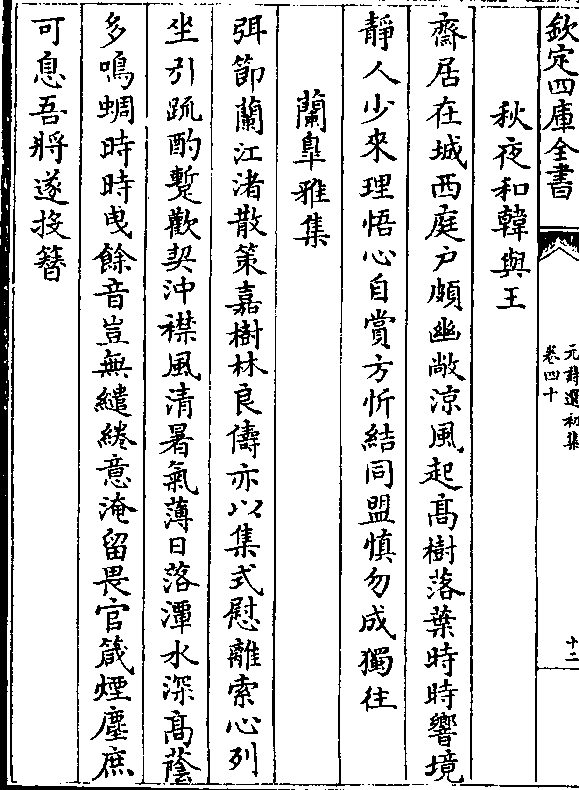 欽定四庫全書
元詩選初集
卷四十
十二
秋夜和韓與王
齋居在城西庭户頗幽敞涼風起髙樹落葉時時響境
靜人少來理悟心自賞方忻結同盟慎勿成獨往
蘭臯雅集
弭節蘭江渚散策嘉樹林良儔亦以集式慰離索心列
坐引䟽酌蹔歡契沖襟風清暑氣薄日落潭水深髙蔭
多鳴蜩時時曵餘音豈無繾綣意淹留畏官箴煙塵庶
可息吾將遂投簮